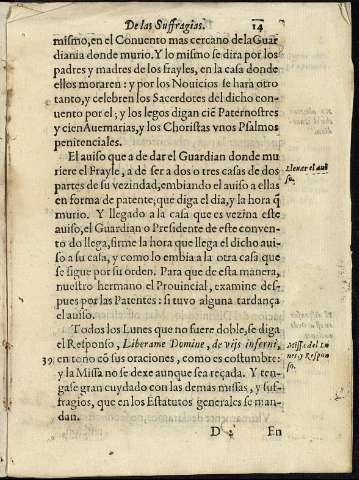 De las Suffragias. 14
mismo, en el Conuento mas cercano de la Guar
diania donde murio. Y lo mismo se dira por los
padres y madres de los frayles, en la casa donde
ellos moraren : y por los Nouicios se hara otro
tanto, y celebren los Sacerdotes del dicho con-
uento por el ; y los legos digan ciẽ Paternostres
y cien Auemarias, y los Choristas vnos Psalmos
penitenciales.
El auiso que a de dar el Guardian donde mu
riere el Frayle, a de ser a dos o tres casas de dos
partes de su vezindad, embiando el auiso a ellas
en forma de patente; que diga el dia, y la hora q̃
murio. Y llegado a la casa que es vezina este
auiso, el Guardian o Presidente de este conuen-
to do llega, firme la hora que llega el dicho aui-
so a su casa, y como lo embia a la otra casa que
se sigue por su orden. Para que de esta manera,
nuestro hermano el Prouincial, examine des-
pues por las Patentes : si tuvo alguna tardança
el auiso.
Lleuar el aui
so.
Todos los Lunes que no fuere doble, se diga
el Responso, Liberame Domine, de vijs inferni,
en tono cõ sus oraciones, como es costumbre:
y la Missa no se dexe aunque sea reçada. Y ten-
gase gran cuydado con las demas missas, y suf-
fragios, que en los Estatutos generales se man-
dan.
Missa del Lu
nes y Respon
so.
39
D En